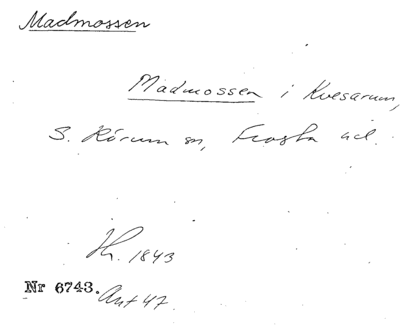 Madmossen
Madmossen i Kvesarum,
S. Rörum sn, Frosta hd.
Th. 1843
Nr 6743. Ant 47